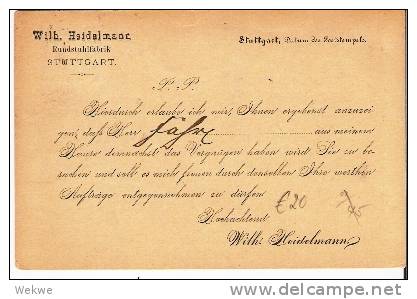 Wilh. Heidelmann
Rundstuhlfabrik
STUTTGART.
Stuttgart, Datum des Poststempels.
P. P.
Hierdurch erlaube ich mir, Ihnen ergebenst anzuzei-
gen, daß Herr Fahr aus meinem
Hause demnächst das Vergnügen haben wird Sie zu be-
suchen und soll es mich freuen durch denselben Ihre werthen
Aufträge entgegennehmen zu dürfen
Hochachtend
Wilh. Heidelmann
€20
Wekwe
delcampe.net